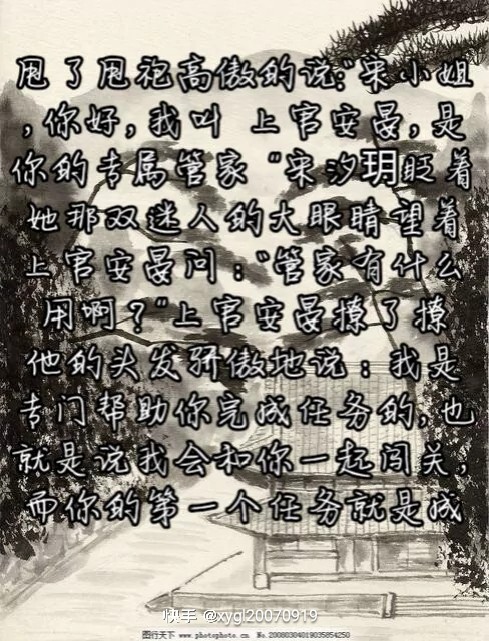 甩了甩袍高傲的说:"宋小姐
,你好,我叫 上官安晏,是
你的专属管家"宋汐玥眨着
她那双迷人的大眼睛望着
上官安晏问:"管家有什么
用啊?"上官安晏撩了撩
他的头发骄傲地说:我是
专门帮助你完成任务的,也
就是说我会和你一起闯关,
而你的第一个任务就是成
快手 @xygl20070919
图行天下 www.photophoto.cn No.20080304019035854250